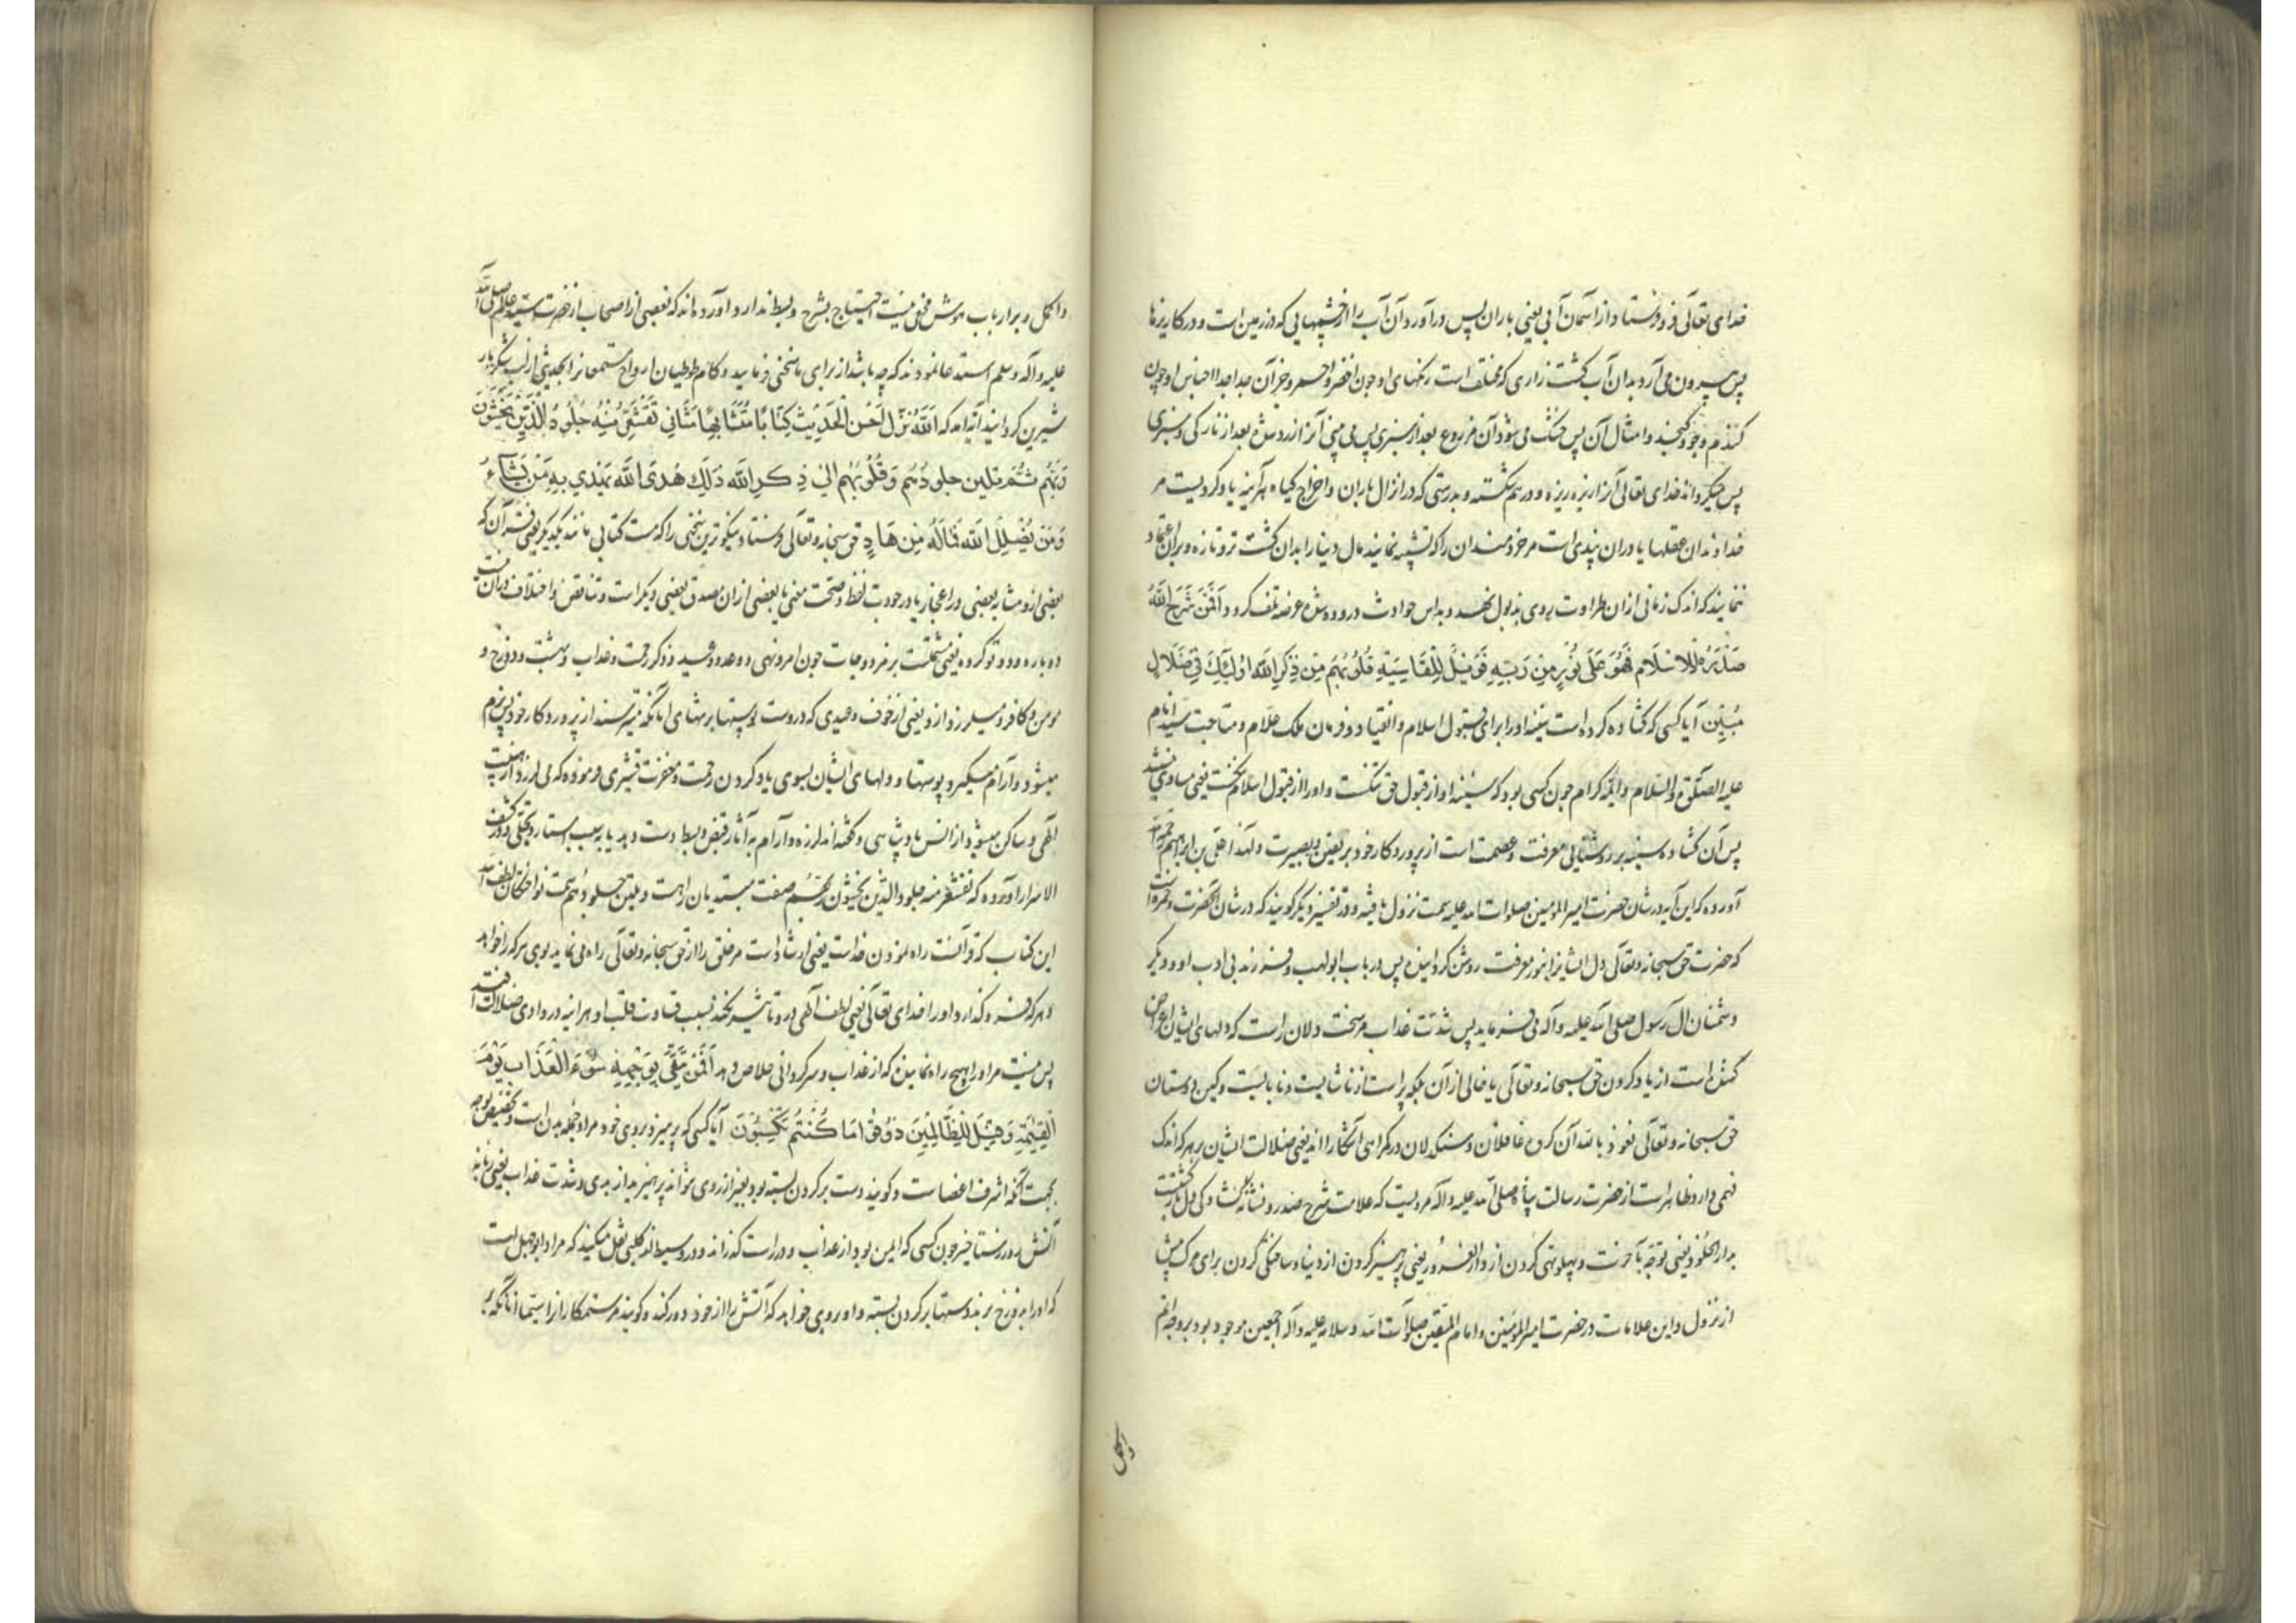 خدای تعالی فرو فرستاد از آسمان آبی یعنی باران پس در آورد آن آب را از چشمهایی که در زمین است و در کاریزها
پس بیرون می آرد بدان آب کشت زاری که مختلف است رنگهای او چون اخضر و احمر و جز آن جدا جدا اجناس او چون
کندم و جو و کنجد و امثال آن پس خشک می شود آن مزروع بعد از سبزی پس می بینی آنرا زرد شده بعد از تازگی و سبزی
پس میگرداند خدای تعالی آنرا ریزه ریزه و درهم شکسته و بدرستی که در انزال باران و اخراج کیاه هر آینه یاد کردیست مر
خداوندان عقلها یا در آن پندی است مر خردمندان را که تشبیه نمایند مال دنیا را بدان کشت تر و تازه و بر آن اعتماد
ننمایند که اندک زمانی از آن طراوت روی بذبول نهد و بداس حوادث دروده شده عرضه تلف گردد اَفَمَنْ شَرَحَ اللّٰهُ
صَدْرَهُ لِلْاِسْلَامِ فَهُوَ عَلَى نُوْرٍ مِنْ رَبِّهِ فَوَيْلٌ لِلْقَاسِيَةِ قُلُوبُهُمْ مِنْ ذِكْرِ اللّٰهِ اُولٰئِكَ فِي ضَلَالٍ
مُبِيْنٍ آیا کسی که کشاده کرده است سینه او را برای قبول اسلام و انقیاد و فرمان ملک علام و متابعت سید انام
علیه الصلوة و السلام و ائمه کرام چون کسی بود که سینه او از قبول حق تنکست و او را از قبول اسلام یعنی مساوی نیستند
پس آن کشاده سینه بر روشنایی معرفت و عصمت است از پروردکار خود بر یقین و بصیرت و لهذا علی بن ابراهیم رحمه الله
آورده که این آیه در شان حضرت امیر المومنین صلوات الله علیه سمت نزول یافته و در تفسیر دیگر کویند که در شان آنحضرت و حمزه است
که حضرت حق سبحانه و تعالی دل ایشانرا بنور معرفت روشن کردانیده پس در باب ابولهب و فرزند بی ادب او و دیگر
دشمنان آل رسول صلی الله علیه و آله می فرماید پس شدت عذاب مر سخت دلان راست که دلهای ایشان اعراض
کننده است از یاد کردن حق سبحانه و تعالی یا خالی از آن بلکه پر است از ناشایست و نابایست و کین دوستان
حق سبحانه و تعالی نعوذ بالله آن کروه غافلان و سنکدلان در کمراهی آشکارا اند یعنی ضلالت ایشان بر هر که اندک
فهمی دارد ظاهر است از حضرت رسالت پناه صلی الله علیه و آله مرویست که علامت شرح صدر و نشانه کشادکی دل بازگشت
بدار الخلود یعنی توجه بآخرت و پهلو تهی کردن از دار الغرور یعنی پرهیز کردن از دنیا و ساختگی کردن برای مرک پیش
از نزول و این علامات در حضرت امیر المومنین و امام المتقین صلوات الله و سلامه علیه و آله اجمعین موجود بود بر وجه اتم
و اکمل
و اکمل و بر ارباب هوش مخفی نیست احتیاج بشرح و بسط ندارد و آورده اند که بعضی از اصحاب از حضرت سید عالم صلی الله
علیه و آله و سلم استدعا نمودند که چه باشد از برای ما سخنی فرمایید و کام طوطیان ارواح مستمعانرا بحدیثی از لب شکربار
شیرین کردانید آیه آمد که اَللّٰهُ نَزَّلَ اَحْسَنَ الْحَدِيْثِ كِتَابًا مُتَشَابِهًا مَثَانِيَ تَقْشَعِرُّ مِنْهُ جُلُوْدُ الَّذِيْنَ يَخْشَوْنَ
رَبَّهُمْ ثُمَّ تَلِيْنُ جُلُودُهُمْ وَقُلُوبُهُمْ اِلَى ذِكْرِ اللّٰهِ ذٰلِكَ هُدَى اللّٰهِ يَهْدِي بِهِ مَنْ يَشَاءُ
وَمَنْ يُضْلِلِ اللّٰهُ فَمَا لَهُ مِنْ هَادٍ حق سبحانه و تعالی فرستاد نیکوترین سخنی را که هست کتابی مانند یکدیگر یعنی قرآن که
بعضی ازو مشابه بعضی در اعجاز یا در جودت لفظ و صحت معنی یا بعضی از آن مصدق بعضی دیگر است و تناقض و اختلاف در آن نیست
دوباره و دو تو کرده یعنی مشتملست بر مزدوجات چون امر و نهی و وعد و وعید و ذکر رحمت و عذاب و بهشت و دوزخ و
مومن و کافر و میلرزد ازو یعنی از خوف وعیدی که دروست پوستها بر تنهای آنانکه میترسند از پروردکار خود پس نرم
میشود و آرام میگیرد پوستها و دلهای ایشان بسوی یاد کردن رحمت و مغفرت قشیری فرموده که می لرزد از هیبت
الهی و ساکن میشود از انس پادشاهی و گفته اند لرزه و آرام به آثار قبض و بسط دست دهد یا بسبب استتار و تجلی و در کشف
الاسرار آورده که تقشعر منه جلود الذین یخشون ربهم صفت مبتدیان راهست و تلین جلودهم سمت نواختکان لطف اله
این کتاب که قرآنست راه نمودن خداست یعنی ارشاد است مر خلق را از حق سبحانه و تعالی راه می نماید بوی هر که را خواهد
و هر که فرو گذارد او را خدای تعالی یعنی لطف الهی درو تاثیر نکند بسبب قساوت قلب او هر آینه در وادی ضلالت افتد
پس نیست مر او را هیچ راه نماینده که از عذاب و سرکردانی خلاص دهد اَفَمَنْ يَتَّقِيْ بِوَجْهِهِ سُوْءَ الْعَذَابِ يَوْمَ
الْقِيٰمَةِ وَقِيْلَ لِلظَّالِمِيْنَ ذُوْقُوْا مَا كُنْتُمْ تَكْسِبُوْنَ آیا کسی که بپرهیزد بروی خود مراد جمله بدن است و تخصیص بوجه
بجهت آنکه اشرف اعضاست و کویند دست بر کردن بسته بود بغیر از روی نتواند پرهیزید از بدی و شدت عذاب یعنی زبانه
آتش در روز رستاخیز چون کسی که ایمن بود از عذاب و در راست گذراند و در وسیط از کلبی نقل میکند که مراد ابوجهل است
که او را بدوزخ برند دستها بر کردن بسته و او بروی خواهد که آتش را از خود دور کند و کویند مر ستمکارانرا